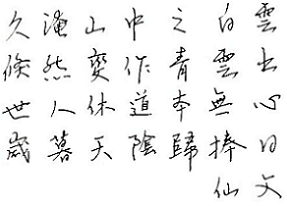 久淹山中之白雲
倏然變作青雲出
世人休道本無心
歲暮天陰歸捧日
仙文